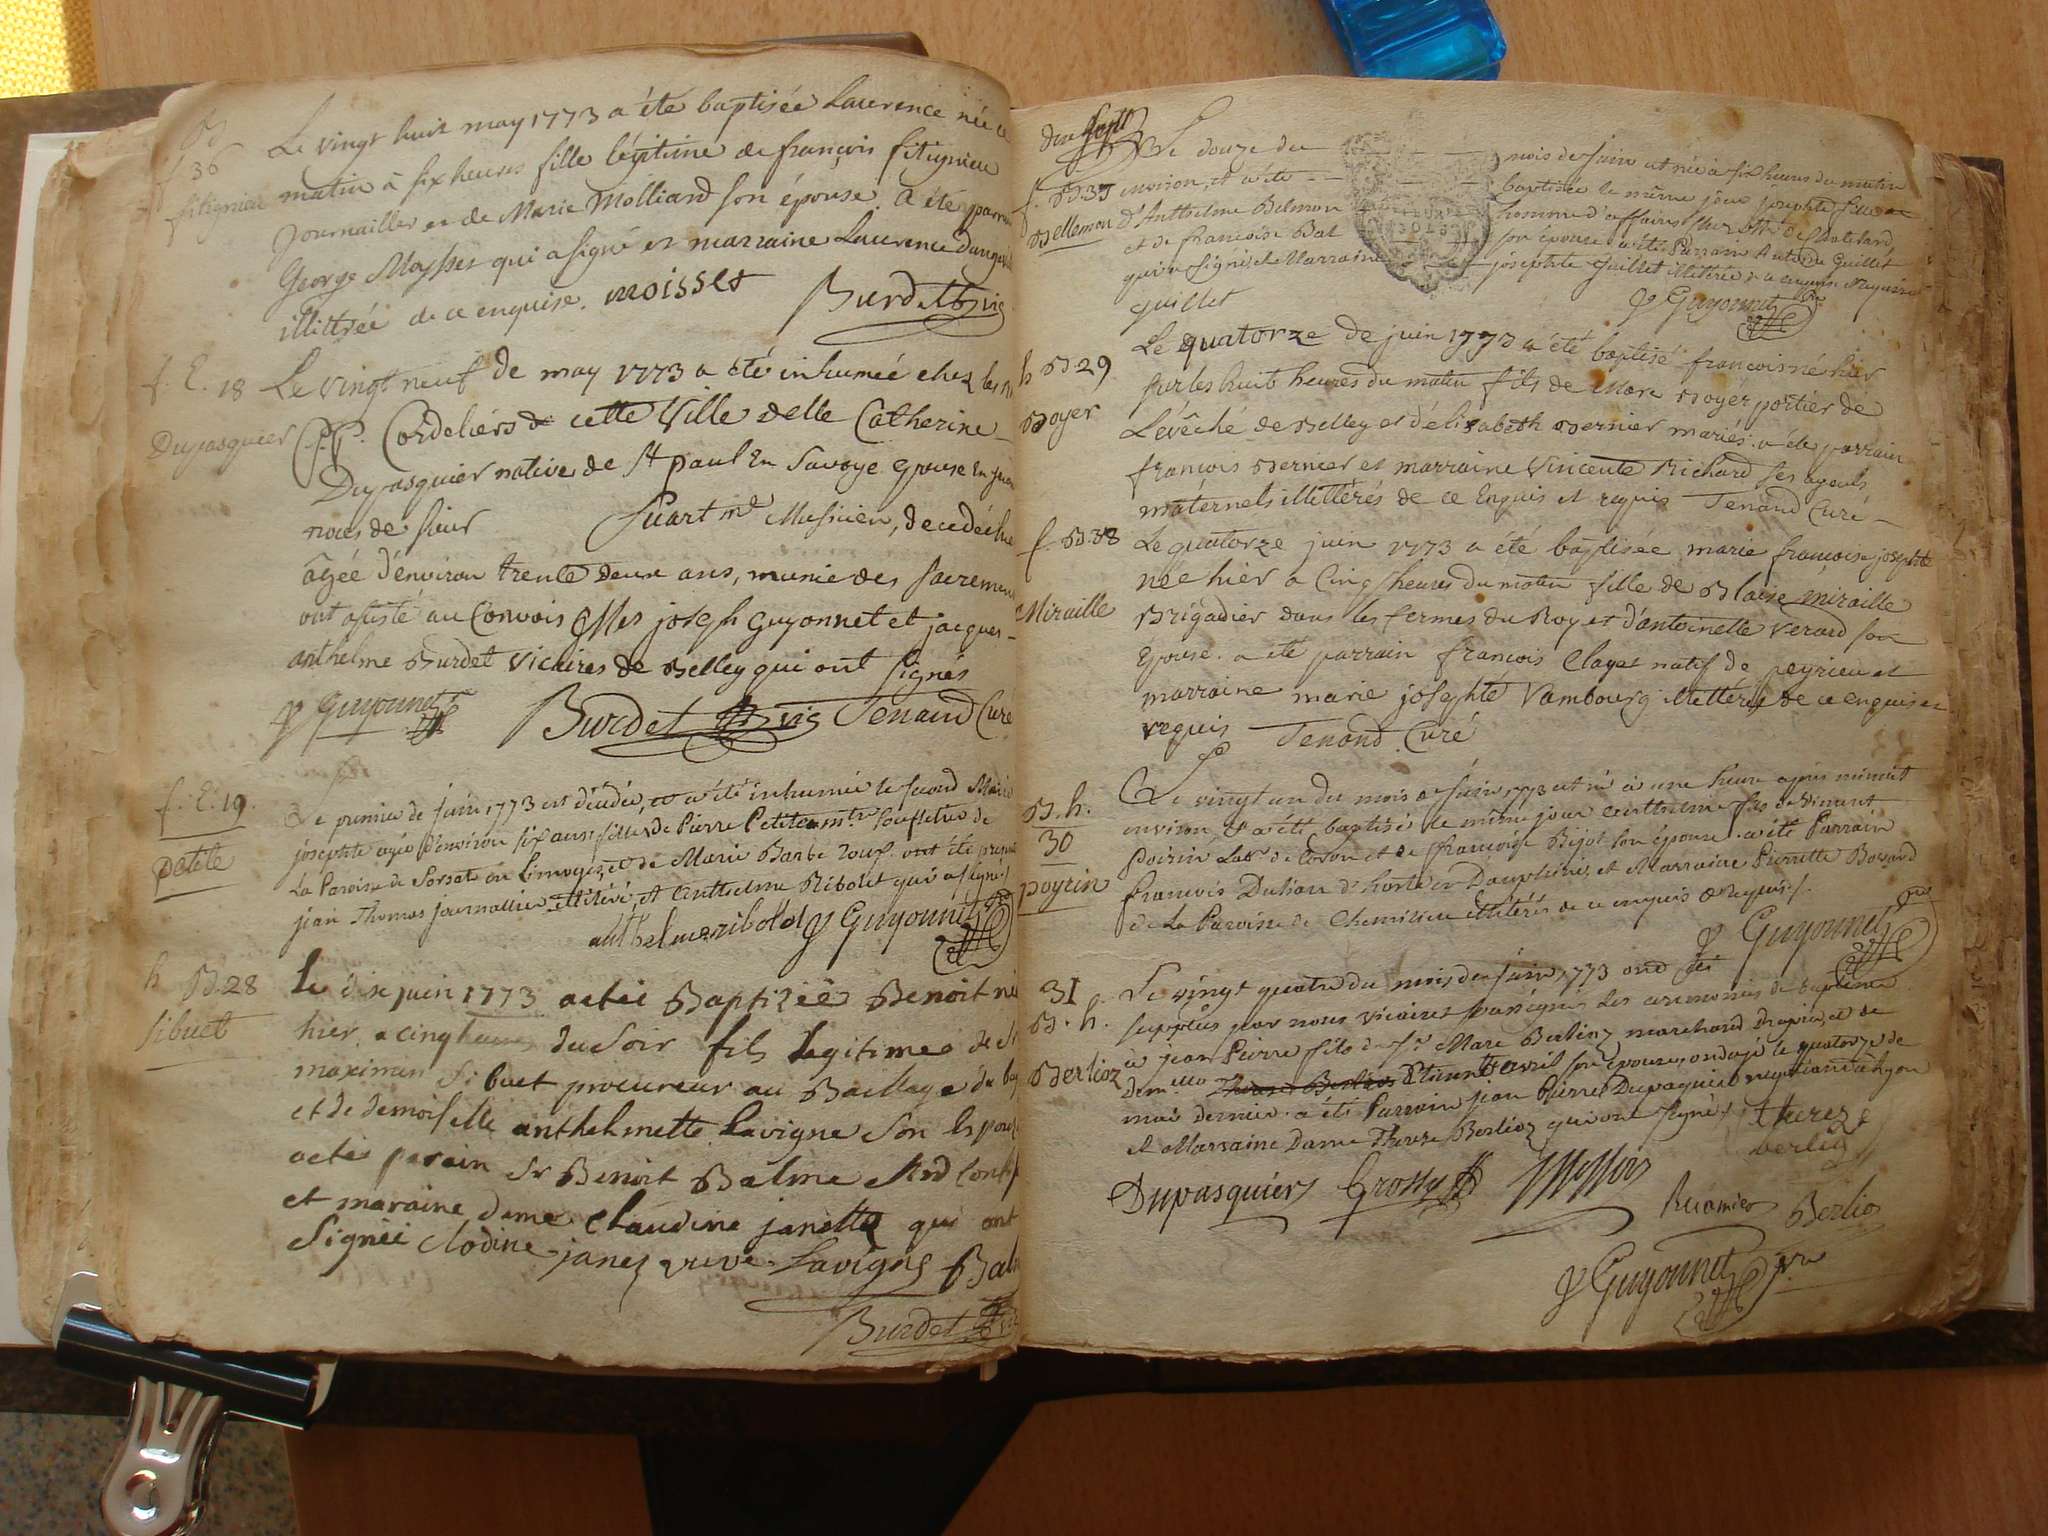 B
f 36
fitignieu
Le vingt huit may 1773 a été baptisée Laurence née ce
matin à six heures fille légitime de françois fitignieu
Journailler et de Marie Molliard son épouse. a été parrain
George Moysses qui a signé et marraine Laurence Dangev
illittrée de ce enquise. moisset Burdet vic
f. E. 18
Dupasquier
Le vingt neuf de may 1773 a été inhumée chez les RR
PP. Cordeliérs de cette Ville delle Catherine
Dupasquier native de St paul En Savoye Epouse En
noces de sieur Suart md Musicien, decedée hie
âgée d'environ trente deux ans, munie des sacremens
ont assisté au Convois Mes joseph Guyonnet et jacques
anthelme Burdet Vicaires de Belley qui ont signés
J Guyonnet Burdet vic Tenand Curé
f. E. 19.
petite
Le premier de juin 1773 est décédée, et a été inhumée le second Marie
josephte agée d'environ six ans fille de Pierre Petite mtre
La Paroisse de en Limoges, et de Marie Barbe Roux. ont été présens
jean Thomas journallier illitéré, et Anthelme Ribollet qui a signé
anthelme ribolet J Guyonnet
h B. 28
sibuet
le dix juin 1773 a eté Baptizéé Benoit né
hier, a cinq heures du soir fils legitime de Sr
maximin Sibuet procureur au Baillage du bug
et de demoiselle anthelmette Lavigne son Epouse
a eté parain Sr Benoit Balme
et maraine dame Claudine janette qui ont
Signéé Clodine janez Lavigne Balme
Burdet vic
f. B. 37
Bellemon
Le douze du mois de Juin est née à six heures du matin
environ, et a été baptisée le même jour josephte fille
d'Anthelme Belmon homme d'affaires
et de francoise Bal son épouse a été Parrain Antoine Guillet
qui a signé, et Marraine josephte Guillet illitérée de ce enquise et requise
guillet J Guyonnet
h B 29
Boyer
Le quatorze de juin 1773 a été baptisé francois né hier
sur les huit heures du matin fils de Marc Boyér portiér de
Lévêché de Belley et d'élisabeth Bernier mariés. a été parrain
françois Bernier et marraine Vincente Richard ses ayeuls
maternels illittérés de ce Enquis et requis Tenand Curé
f. B. 38
Miraille
Le quatorze juin 1773 a été baptisée marie françoise josephte
née hier a Cinq heures du matin fille de Blaise miraille
Brigadier dans les fermes du Roy et d'antoinette Verard son
Epouse. a été parrain francois Clayet natif de peyrieu et
marraine marie josephte Vambourg illittérés de ce enquis et
requis Tenand Curé
B. h.
30
poyrin
Le vingt un du mois de juin 1773 est né à une heure après minuit
environ, et a été baptisé le même jour Anthelme fils de Vincent
Poirin Labr de Coron et de francoise Bijot son épouse. a été Parrain
francois Dulian d' en Dauphiné, et Marraine Pierrette Bovard
de La Paroisse de Chemilieu illitérés de ce enquis et requis
J Guyonnet
31
B. h.
Berlioz
Le vingt quatre du mois de juin 1773 ont été
supplées par nous vicaire soussigné Les ceremonies du baptême
à jean Pierre fils de Sr Marc Berlioz marchand Drapier, et de
demelle Etiennette avril son épouse, ondojé le quatorze de
mai dernier. a été Parrain jean Pierre Dupasquier negociant à Lyon
et Marraine Dame Therese Berlioz qui ont signé
therez
berlioz
Dupasquiers Grossy
Berlio
J Guyonnet